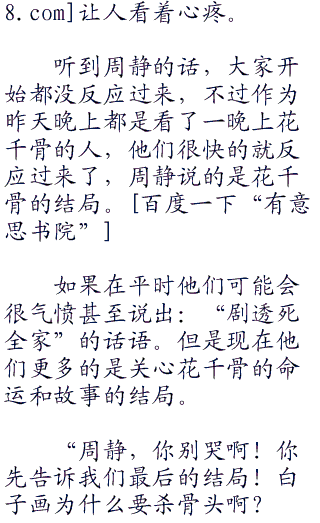 8.com]让人看着心疼。
听到周静的话，大家开
始都没反应过来，不过作为
昨天晚上都是看了一晚上花
千骨的人，他们很快的就反
应过来了，周静说的是花千
骨的结局。[百度一下“有意
思书院”]
如果在平时他们可能会
很气愤甚至说出：“剧透死
全家”的话语。但是现在他
们更多的是关心花千骨的命
运和故事的结局。
“周静，你别哭啊！你
先告诉我们最后的结局！白
子画为什么要杀骨头啊？